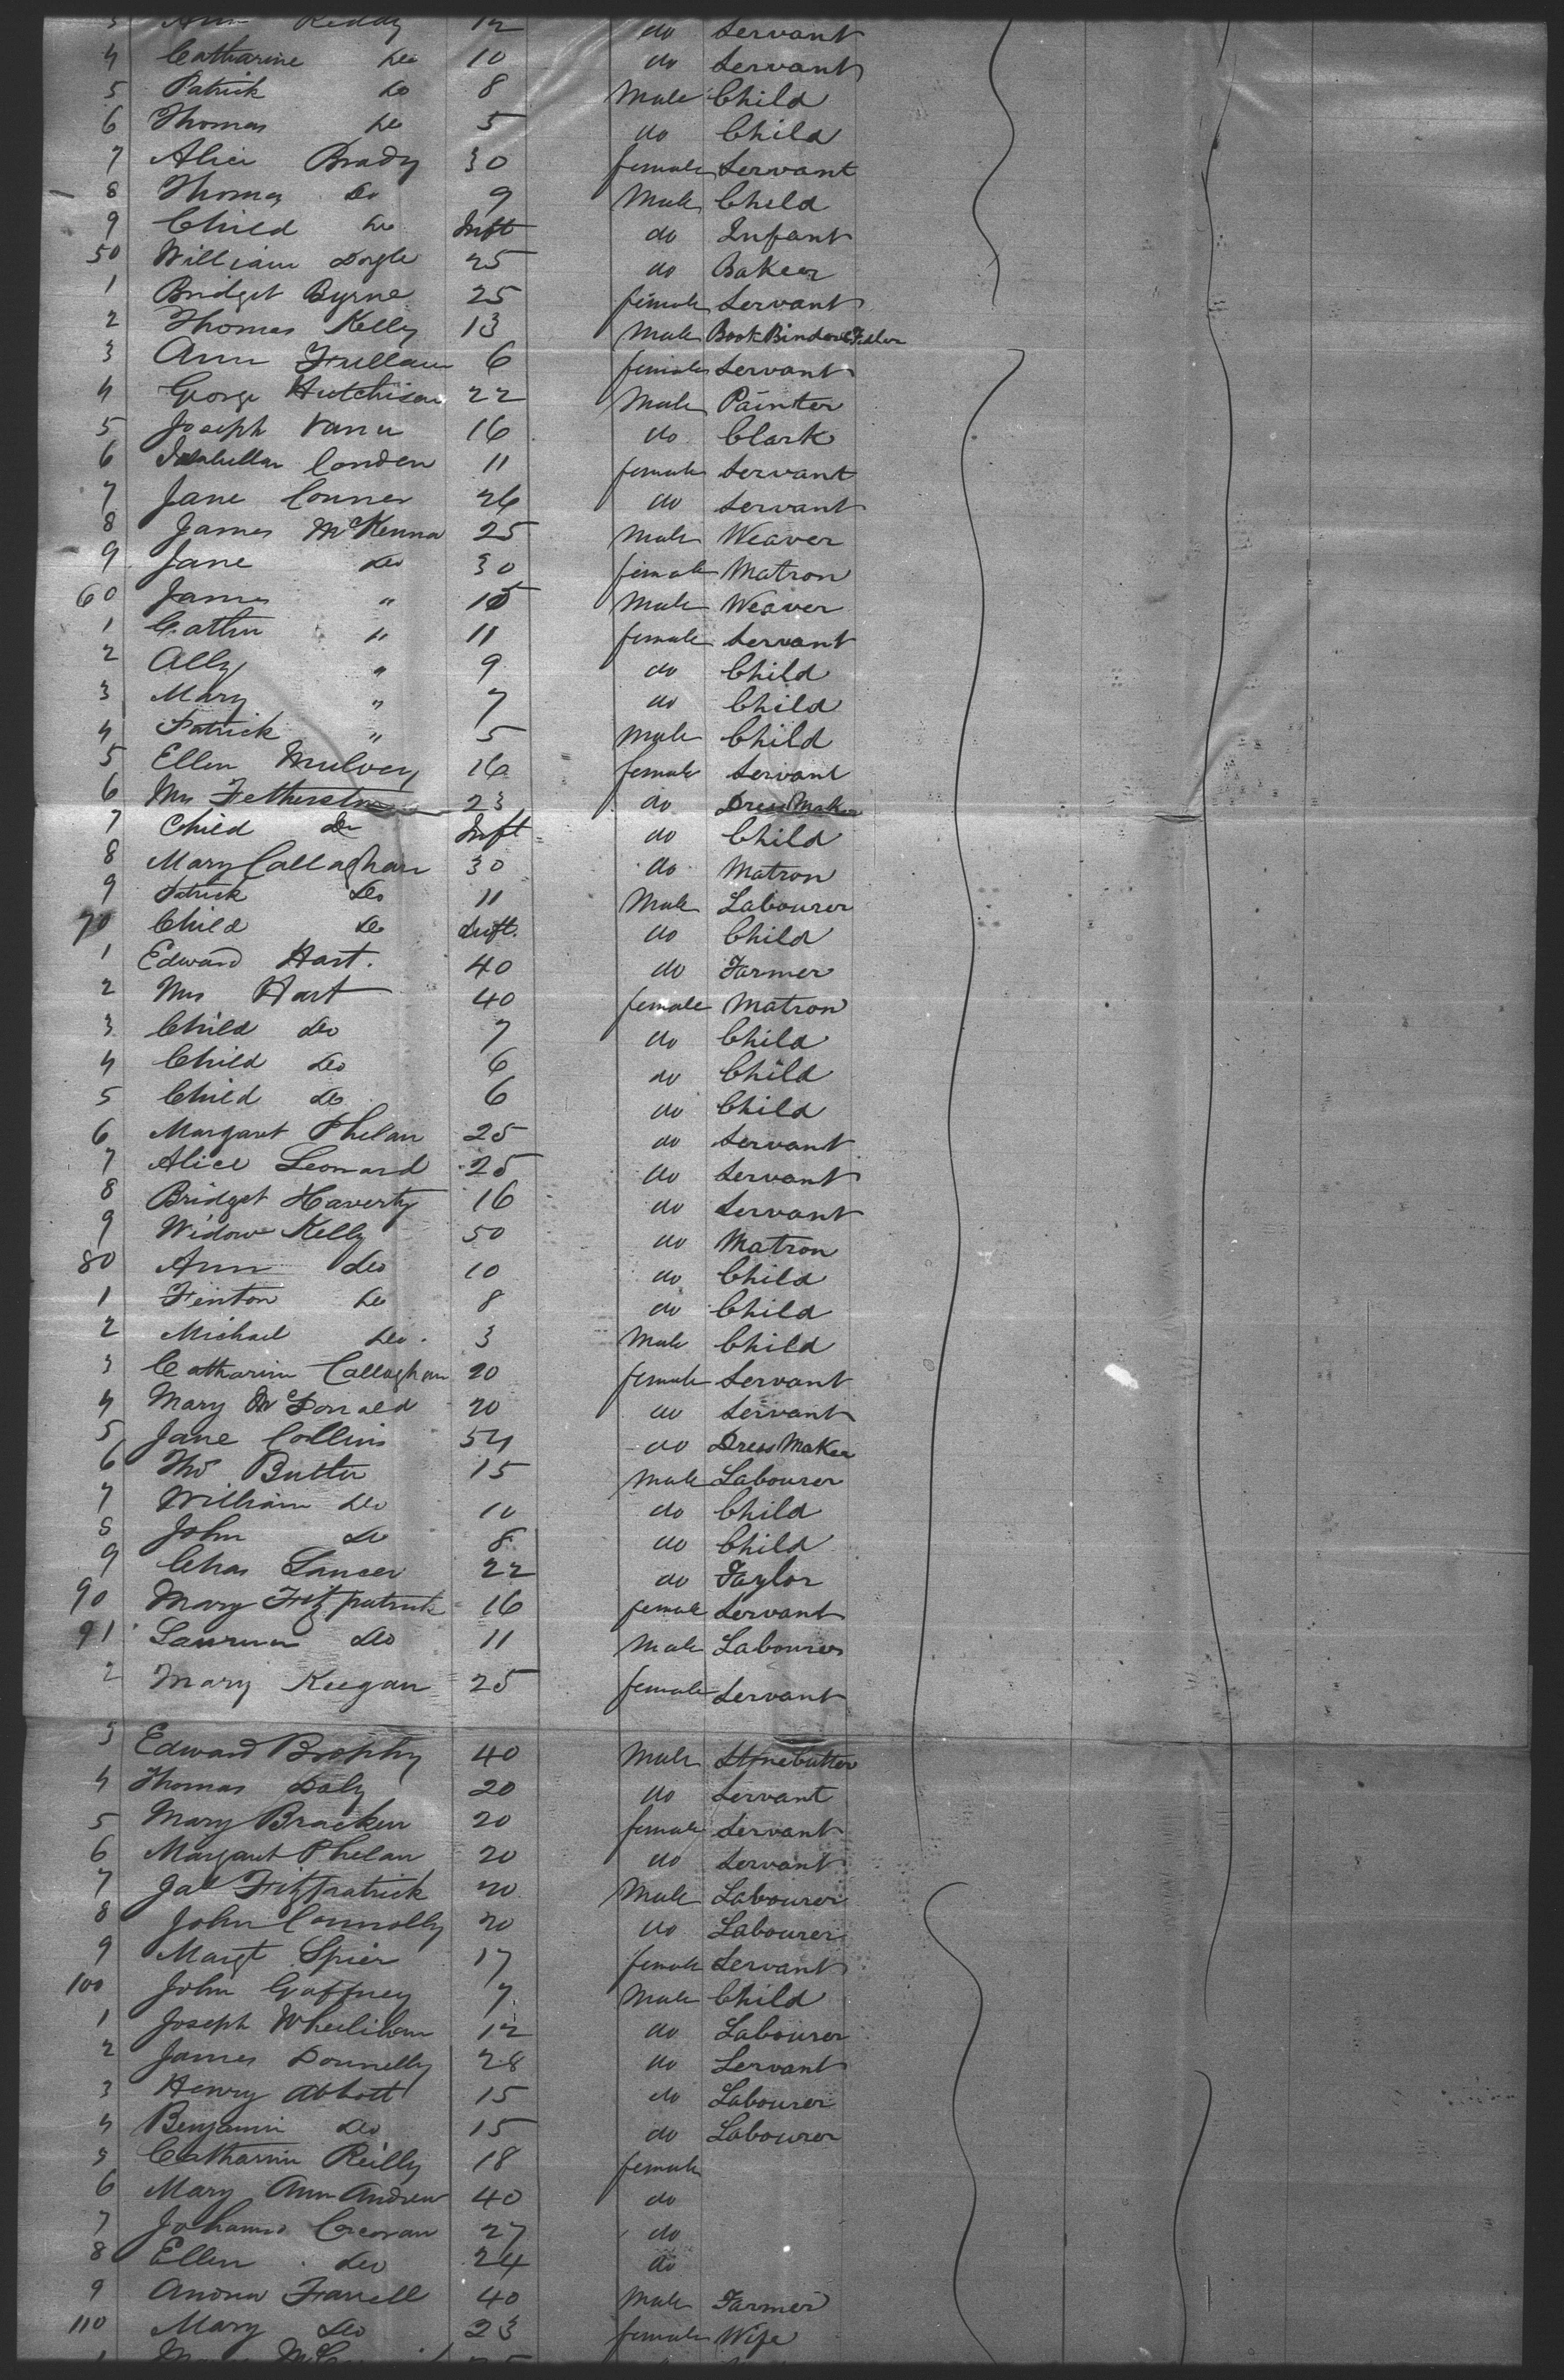 3 Ann Reddy 12 do Servant
4 Catharine Do 10 do Servant
5 Patrick Do 8 Male Child
6 Thomas Do 5 do Child
7 Alice Brady 30 female Servant
8 Thomas Do 9 Male Child
9 Child Do Inft do Infant
50 William Doyle 25 do Baker
1 Bridget Byrne 25 female Servant
2 Thomas Kelly 13 Male Book Binder
3 Ann Fullam 6 female Servant
4 George Hutchison 22 Male Painter
5 Joseph 16 do Clark
6 Isabella Conden 11 female Servant
7 Jane Conner 26 do Servant
8 James McKenna 25 Male Weaver
9 Jane Do 30 female Matron
60 James " 15 Male Weaver
1 Cathn " 11 female Servant
2 Ally " 9 do Child
3 Mary " 7 do Child
4 Patrick " 5 Male Child
5 Ellen Mulvey 16 female Servant
6 Mrs Fetherston 23 do Dress Maker
7 Child Do Inft do Child
8 Mary Callaghan 30 do Matron
9 Patrick Do 11 Male Labourer
70 Child Do Inft. do Child
1 Edward Hart. 40 do Farmer
2 Mrs Hart 40 female Matron
3 Child Do 7 do Child
4 Child Do 6 do Child
5 Child Do 6 do Child
6 Margaret Phelan 25 do Servant
7 Alice Leonard 25 do Servant
8 Bridget Haverty 16 do Servant
9 Widow Kelly 50 do Matron
80 Ann Do 10 do Child
1 Finton Do 8 do Child
2 Michael Do. 3 Male Child
3 Catharine Callaghan 20 female Servant
4 Mary McDonald 20 do Servant
5 Jane Collins 54 do Dress Maker
6 Thos Butler 15 Male Labourer
7 William Do 10 do Child
8 John Do 8 do Child
9 Chas Lancer 22 do Taylor
90 Mary Fitzpatrick 16 female Servant
91 Do 11 Male Labourer
2 Mary Keegan 25 female Servant
3 Edward Brophy 40 Male Stonecutter
4 Thomas Daly 20 do Servant
5 Mary Bracken 20 female Servant
6 Margaret Phelan 20 do Servant
7 Jas Fitzpatrick 20 Male Labourer
8 John Connolly 20 do Labourer
9 Margt Spier 17 female Servant
100 John Gaffney 7 Male Child
1 Joseph Wheelihan 12 do Labourer
2 James Donnelly 28 do Servant
3 Henry Abbott 15 do Labourer
4 Benjamin Do 15 do Labourer
5 Catharine Reilly 18 female
6 Mary Ann Andrew 40 do
7 Johanna Corcoran 27 do
8 Ellen Do 24 do
9 Andrew Farrell 40 Male Farmer
110 Mary Do 23 female Wife